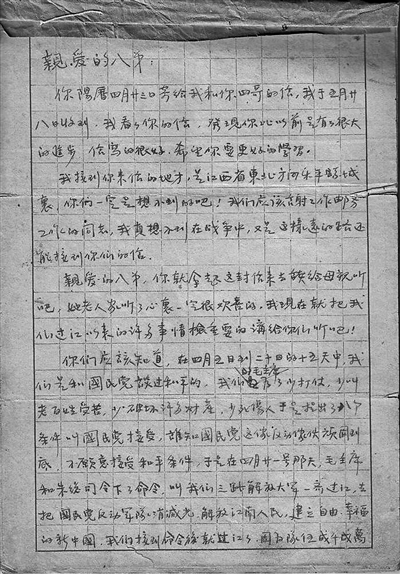 親愛的八弟：
你陽曆四月廿三日寄給我和你四哥的信，我于五月廿
八日收到，我看了你的信，發現你比以前是有了很大
的進步，信寫的很好，希望你要更好的學習。
我接到你來信的地方，是江西省東北方向樂平縣城
裏，你們一定是想不到的吧！我們應該感謝工作郵務
工作的同志，我真想不到在战争中，又是這樣遠的路还
能接到你們的信。
親愛的八弟，你就拿起這封信來去讀給母親听
吧，她老人家听了心裏一定很欢喜的，我現在就把我
們过江以來的许多事情檢重要的講給你們听吧！
你們應該知道，在四月五日到二十日的十五天中，我
們是和國民党談过和平的，我們 了少打仗，少叫
老百姓受苦，少破坏许多財產，少死傷人于是提出了八个
条件叫國民党接受，誰知國民党這個反动傢伙頑固到
底，不願意接受和平条件，于是在四月廿一号那天，毛主席
和朱总司令下了命令，叫我們三路解放大军一齐过江，去
把國民党反动军隊消滅光，解放江南人民，建立自由、幸福
的新中國，我們接到命令後就过江了，因为隊伍成千成萬